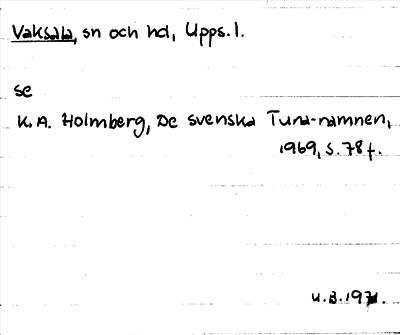 Vaksala, sn och hd, Upps.l.
se
K.A. Holmberg, De svenska Tuna-namnen,
1969, s. 78 f.
U.B. 1971.